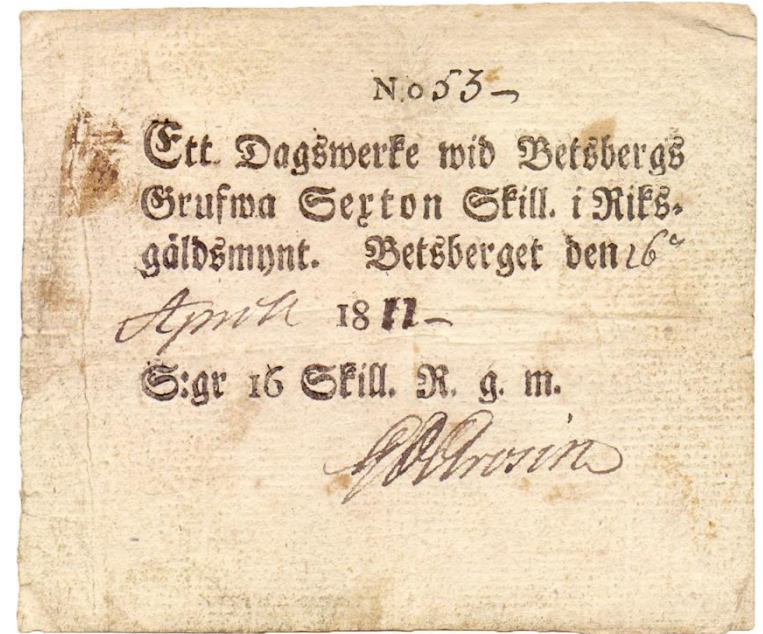 N.o 53 –
Ett Dagswerke wid Betsbergs
Grufwa Sexton Skill. i Riks-
gäldsmynt. Betsberget den 26
Aprill 1811 –
S:gr 16 Skill. R. g. m.